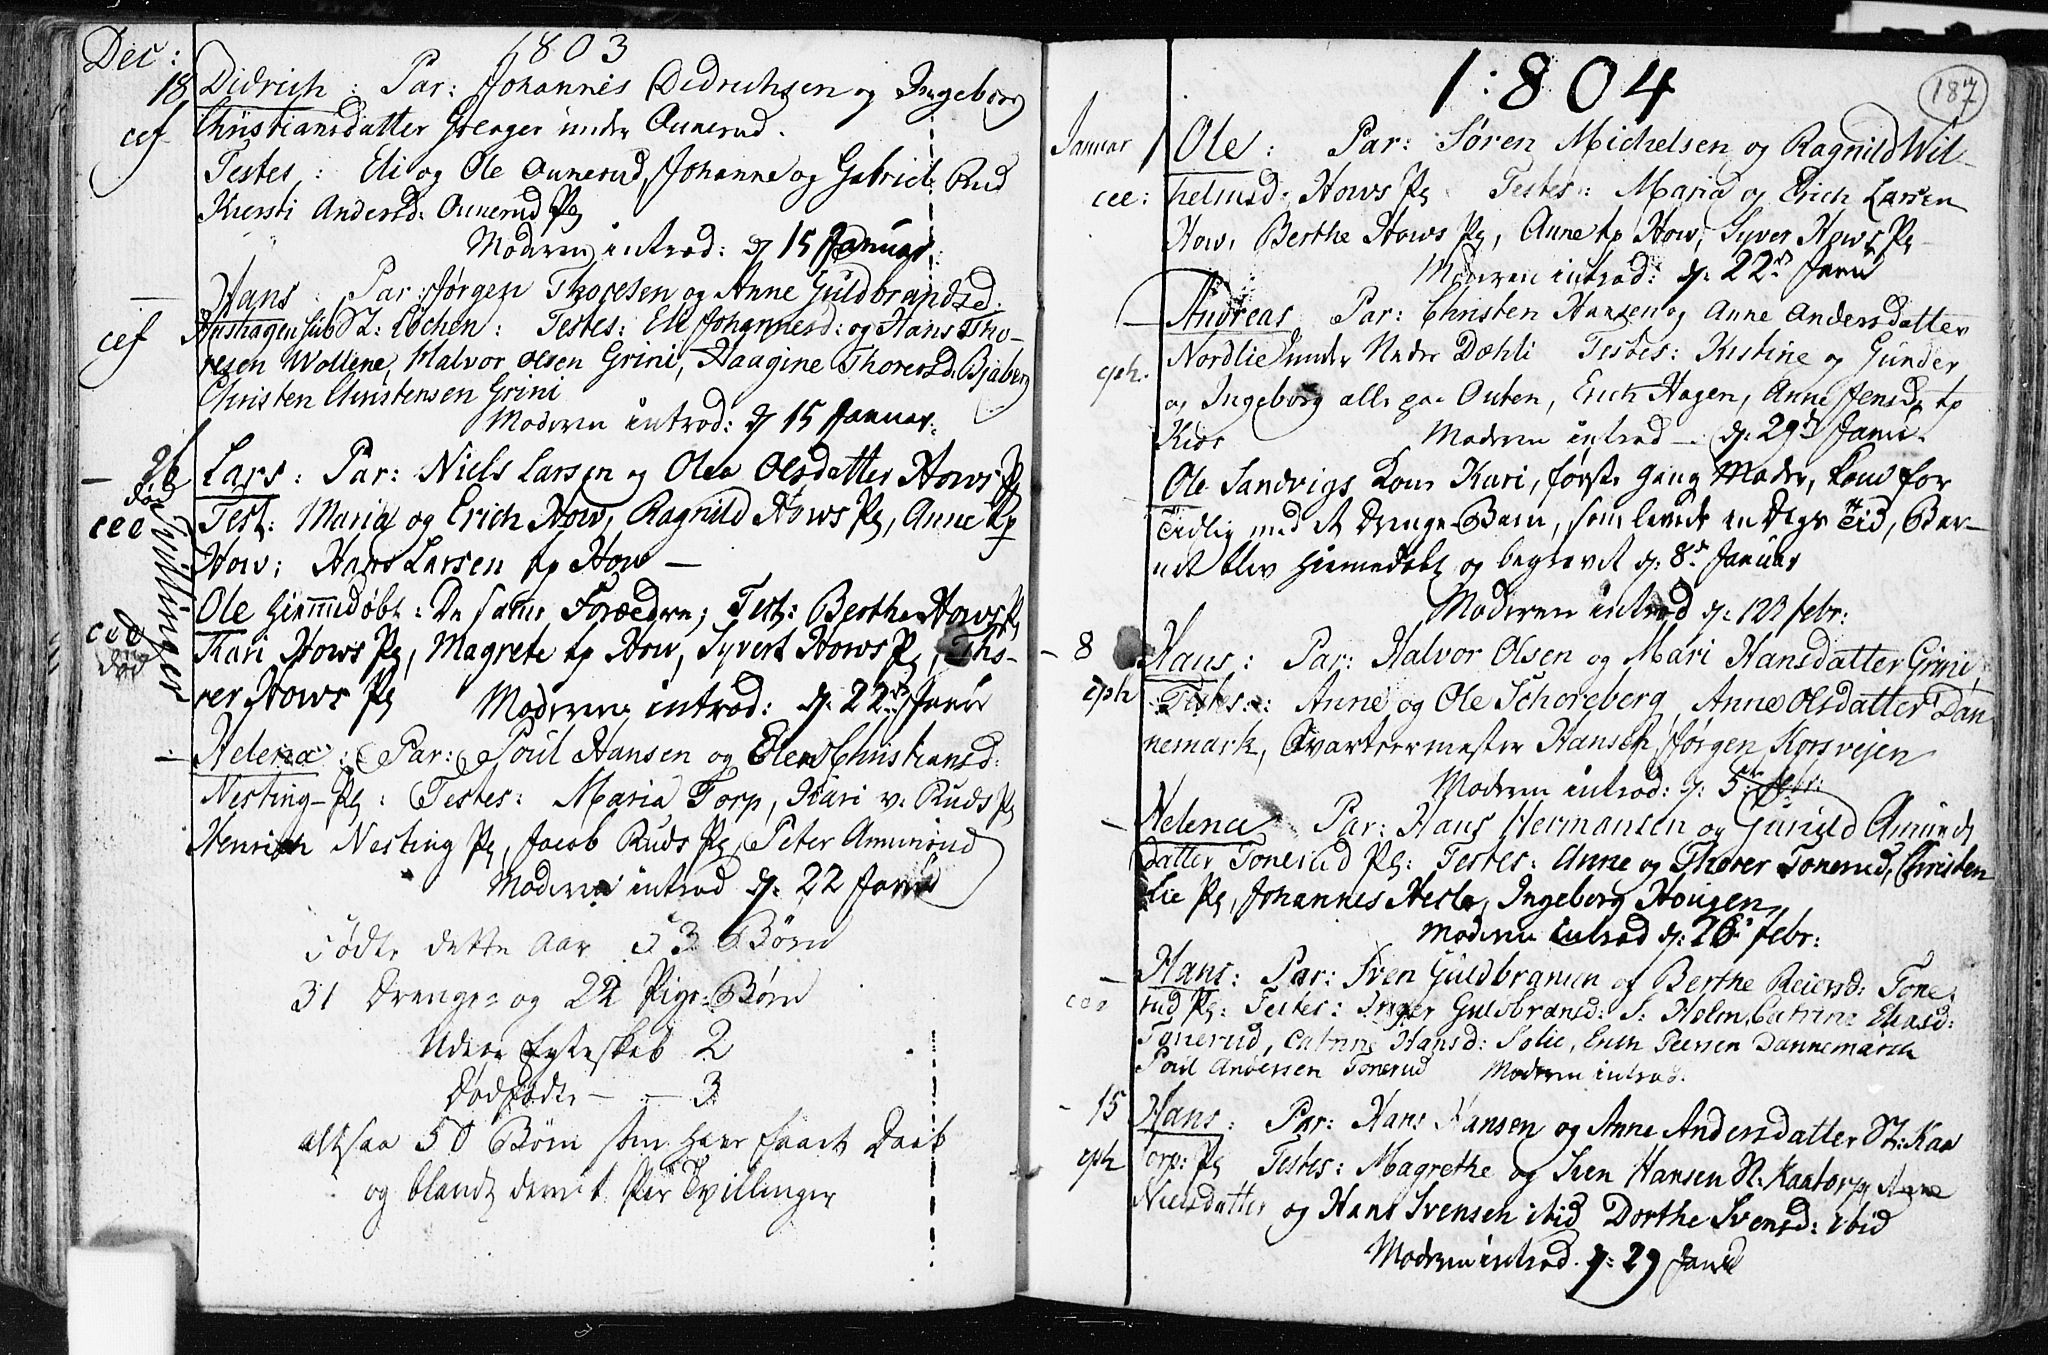 1803
Dec:
18 Didrich : Par: Johannes Didrichsen og Ingeborg
cef Christiansdatter Grenger under Ounerud.
Testes : Eli og Ole Ounerud, Johanne og Gabriel Rud
Kiersti Andersd: Ounerud Pg
Moderen introd: d 15 Januar
— Hans Par: Jørgen Thoresen og Anne Guldbrandsd:
cef sub St: Lochen: Testes: Eli Johannesd: og Hans Tho-
resen Wollene, Halvor Olsen Grini, Haagine Thoresd: Bjaberg
Christen Christensen Grini
Moderen introd: d 15 Januar.
— 26 Lars : Par: Niels Larsen og Olea Olsdatter Hows Pg
død
cee Test: Maria og Erich How, Ragnild Hows Pg, Anne tp
How, Hans Larsen tp How —
Tvillinger
Ole hiemmedøbt: De samme Forældre; Test: Berthe Hows Pg
cee Kari Hows Pg, Magrete tp How, Syvert Hows Pg, Tho-
død rer Hows Pg Moderen introd: d: 22 Janr
— Helena : Par: Poul Hansen og Elen Christiansd:
Nesting-Pg : Testes: Maria Torp, Kari v: Ruds Pg
Henrich Nesting Pg, Jacob Ruds Pg, Peter Amunrud
Moderen introd d: 22 Janr
Fødte dette Aar 53 Børn
31 Drenge- og 22 Pige-Børn
Udere Egteskab 2
Dødfødte — — 3
altsaa 50 Børn som har faaet Daab
og blandt dem 1 Par Tvillinger
187
1:804
Januar 1 Ole : Par: Søren Michelsen og Ragnild Wil-
cee: helmsd: Hows Pg Testes: Maria og Erich Larsen
How, Berthe Hows Pg, Anne tp How, Syver Hows Pg
Moderen introd: d: 22 Janr
— Andreas Par: Christen Hansen og Anne Andersdatter
eph. Nordlie under Nedre Dæhli Testes: Kistine og Gunder
og Ingeborg alle paa Outen, Erich Hagen, Anne Jensd: tp
Kios Moderen introd — d: 29 Janr.
Ole Sandvigs Kone Kari, første gang Moder, kom for
tidlig med et Drenge-Barn, som levede en Dags Tid, Bar-
net blev hiemmedøbt og begravet d: 8 Januar
Moderen introd d: 12 febr:
— 8 Hans : Par: Halvor Olsen og Mari Hansdatter Grini,
eph Testes: Anne og Ole Schoreberg, Anne Olsdatter Dan
nemark, Qvarteermester Hansen, Jørgen Korsvejen
Moderen introd: d: 5 febr:
— Helena Par: Hans Hermansen og Gunild Amunds
datter Tonerud Pg: Testes: Anne og Thorer Tonerud, Christen
Lie Pg, Johannes Hesle, Ingeborg Hougen,
Moderen introd d: 26 febr:
— Hans: Par: Sven Guldbransen og Berthe Reiersd: Tone
cee rud Pg: Testes: Inger Guldbransd: S: Holm, Catrine Eliasd:
Tonerud, Catrine Hansd: Solie, Erich Peersen Dannemarck
Poul Andersen Tonerud Moderen introd.
— 15 Hans : Par: Hans Hansen og Anne Andersdatter St: Kaa
eph torp: Pg Testes: Magrethe og Sven Hansen St: Kaatorp, Anne
Nielsdatter og Hans Svensen ibid Dorthe Svensd: ibid
Moderen introd. d: 29 Janr